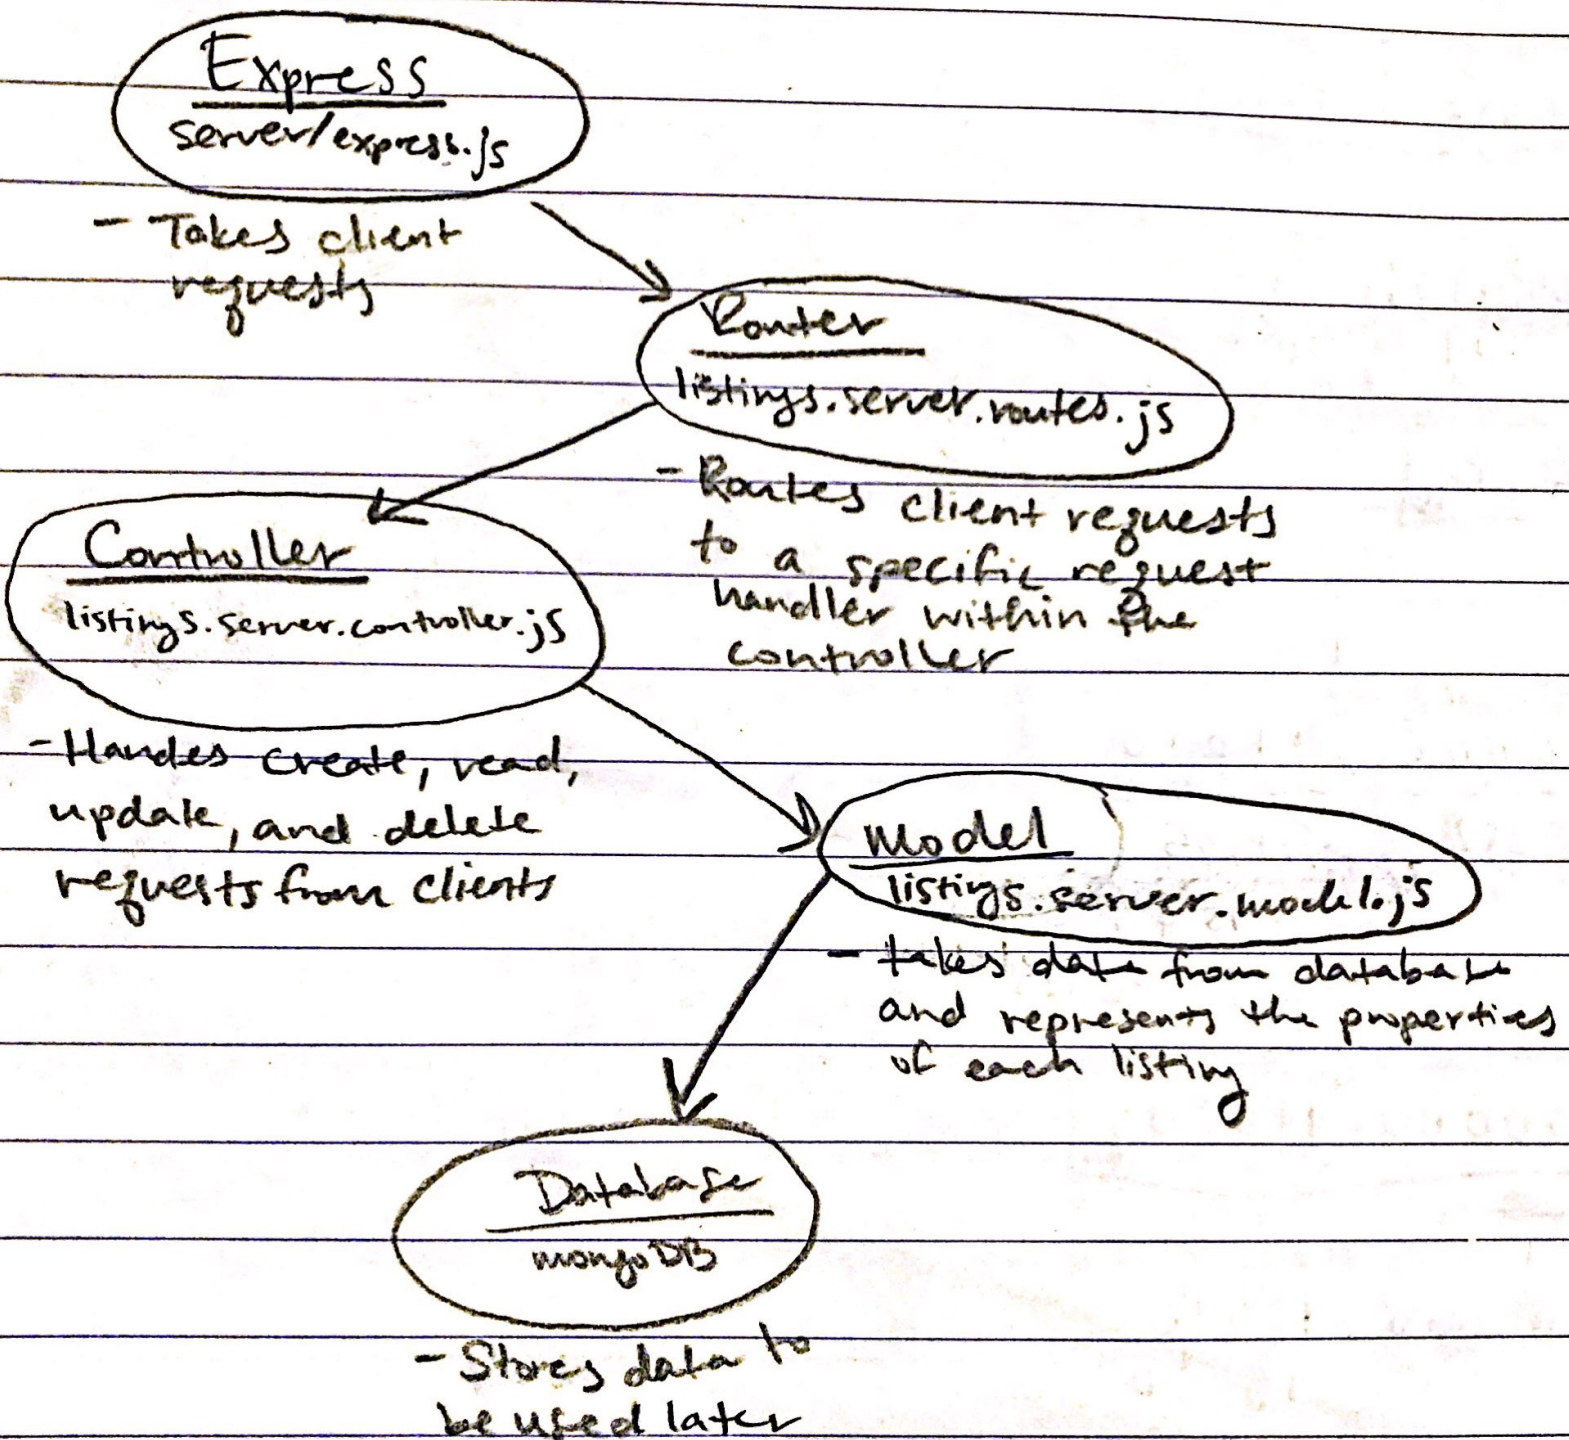 Express
server/express.js
- Takes client
requests
Router
listings.server.routes.js
- Routes client requests
to a specific request
handler within the
controller
Controller
listings.server.controller.js
- Handes create, read,
update, and delete
requests from clients
Model
listings.server.model.js
- takes data from database
and represents the properties
of each listing
Database
mongoDB
- Stores data to
be used later